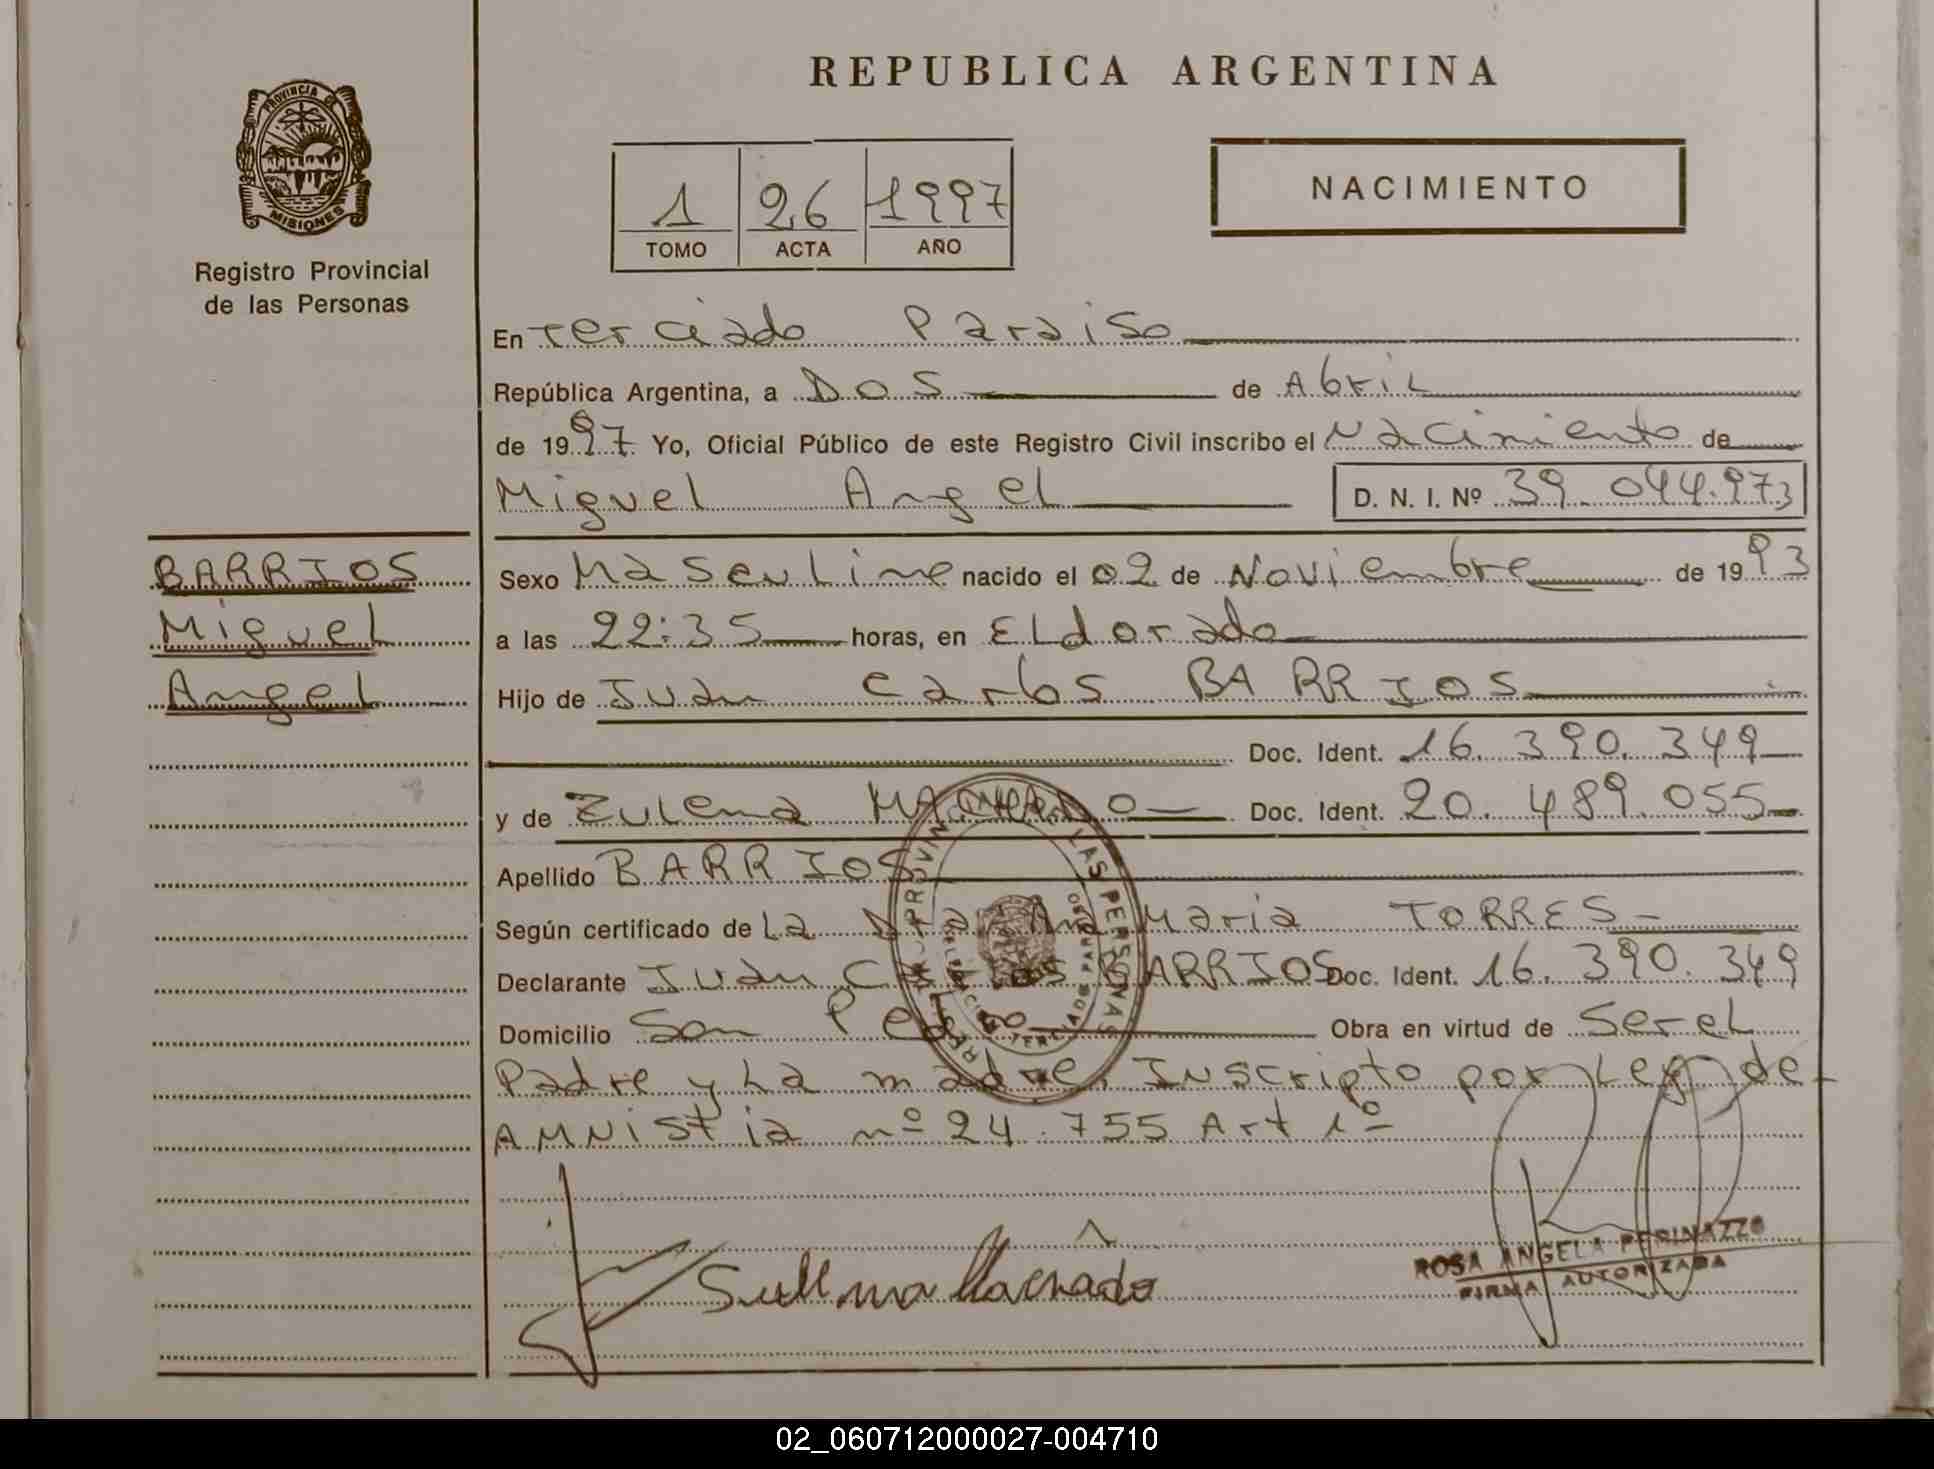 REPUBLICA ARGENTINA
PROVINCIA DE
MISIONES
Registro Provincial
de las Personas
1 26 1997
TOMO ACTA AÑO
NACIMIENTO
En Terciado Paraiso
República Argentina, a Dos de Abril
de 1997 Yo, Oficial Público de este Registro Civil inscribo el Nacimiento de
Miguel Angel D. N. I. Nº 39.044.973
BARRIOS
Miguel
Angel
Sexo Masculino nacido el 02 de Noviembre de 1993
a las 22:35 horas, en Eldorado
Hijo de Juan Carlos BARRIOS
Doc. Ident. 16.390.349
y de Zulema MACHADO Doc. Ident. 20.489.055
Apellido BARRIOS
Según certificado de La Dra. Ana Maria TORRES
Declarante Juan Carlos BARRIOS Doc. Ident. 16.390.349
Domicilio San Pedro Obra en virtud de Ser el
Padre y La madre. Inscripto por Ley de
AMNistia nº 24.755 Art 1º
LAS PERSONAS
Sullma Machado
ROSA ANGELA PERINAZZO
FIRMA AUTORIZADA
02_060712000027-004710